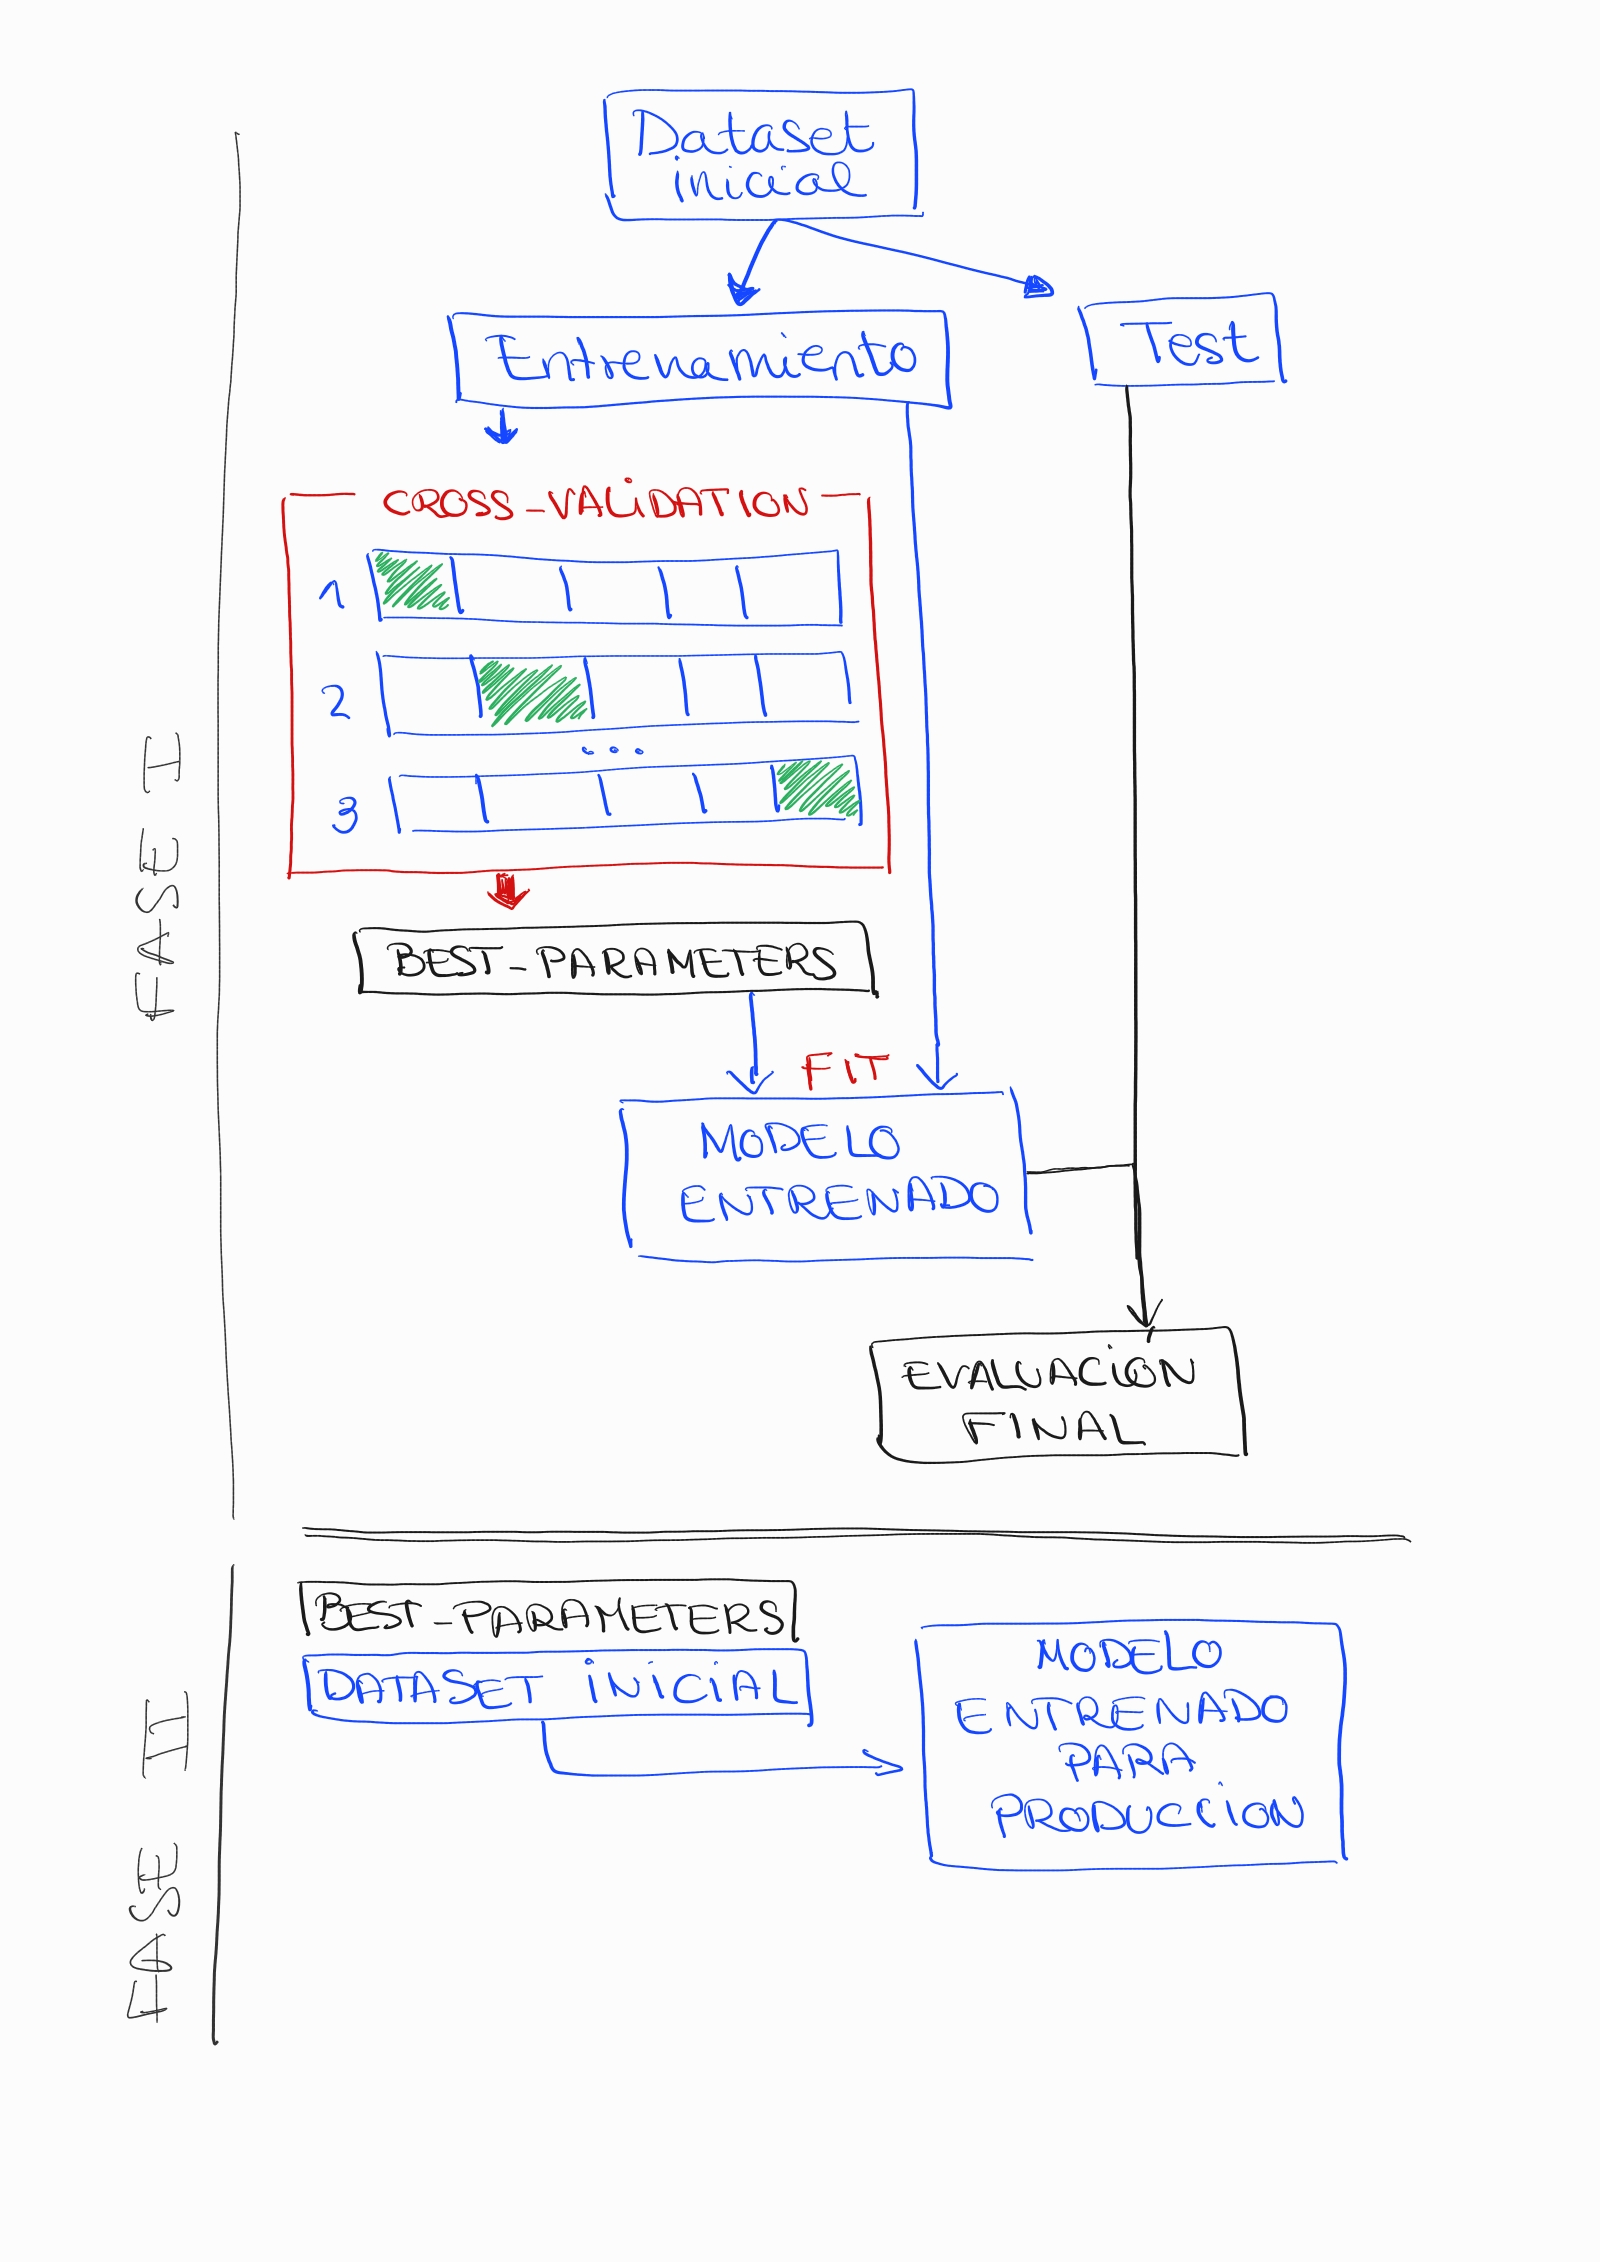 Dataset
inicial
Entrenamiento
Test
CROSS-VALiDATION
1
2
...
3
BEST-PARAMETERS
FIT
MODELO
ENTRENADO
EVALUACiÓN
FINAL
FASE I
BEST-PARAMETERS
DATASET iNiCiAL
MODELO
ENTRENADO
PARA
PRODUCCiON
FASE II